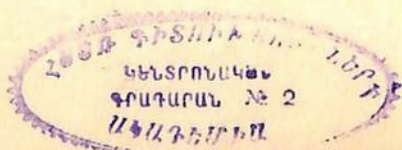 ՀՍՍՌ ԳԻՏՈՒԹ
ԿԵՆՏՐՈՆԱԿԱՆ
ԳՐԱԴԱՐԱՆ № 2
ԱԿԱԴԵՄԻԱ